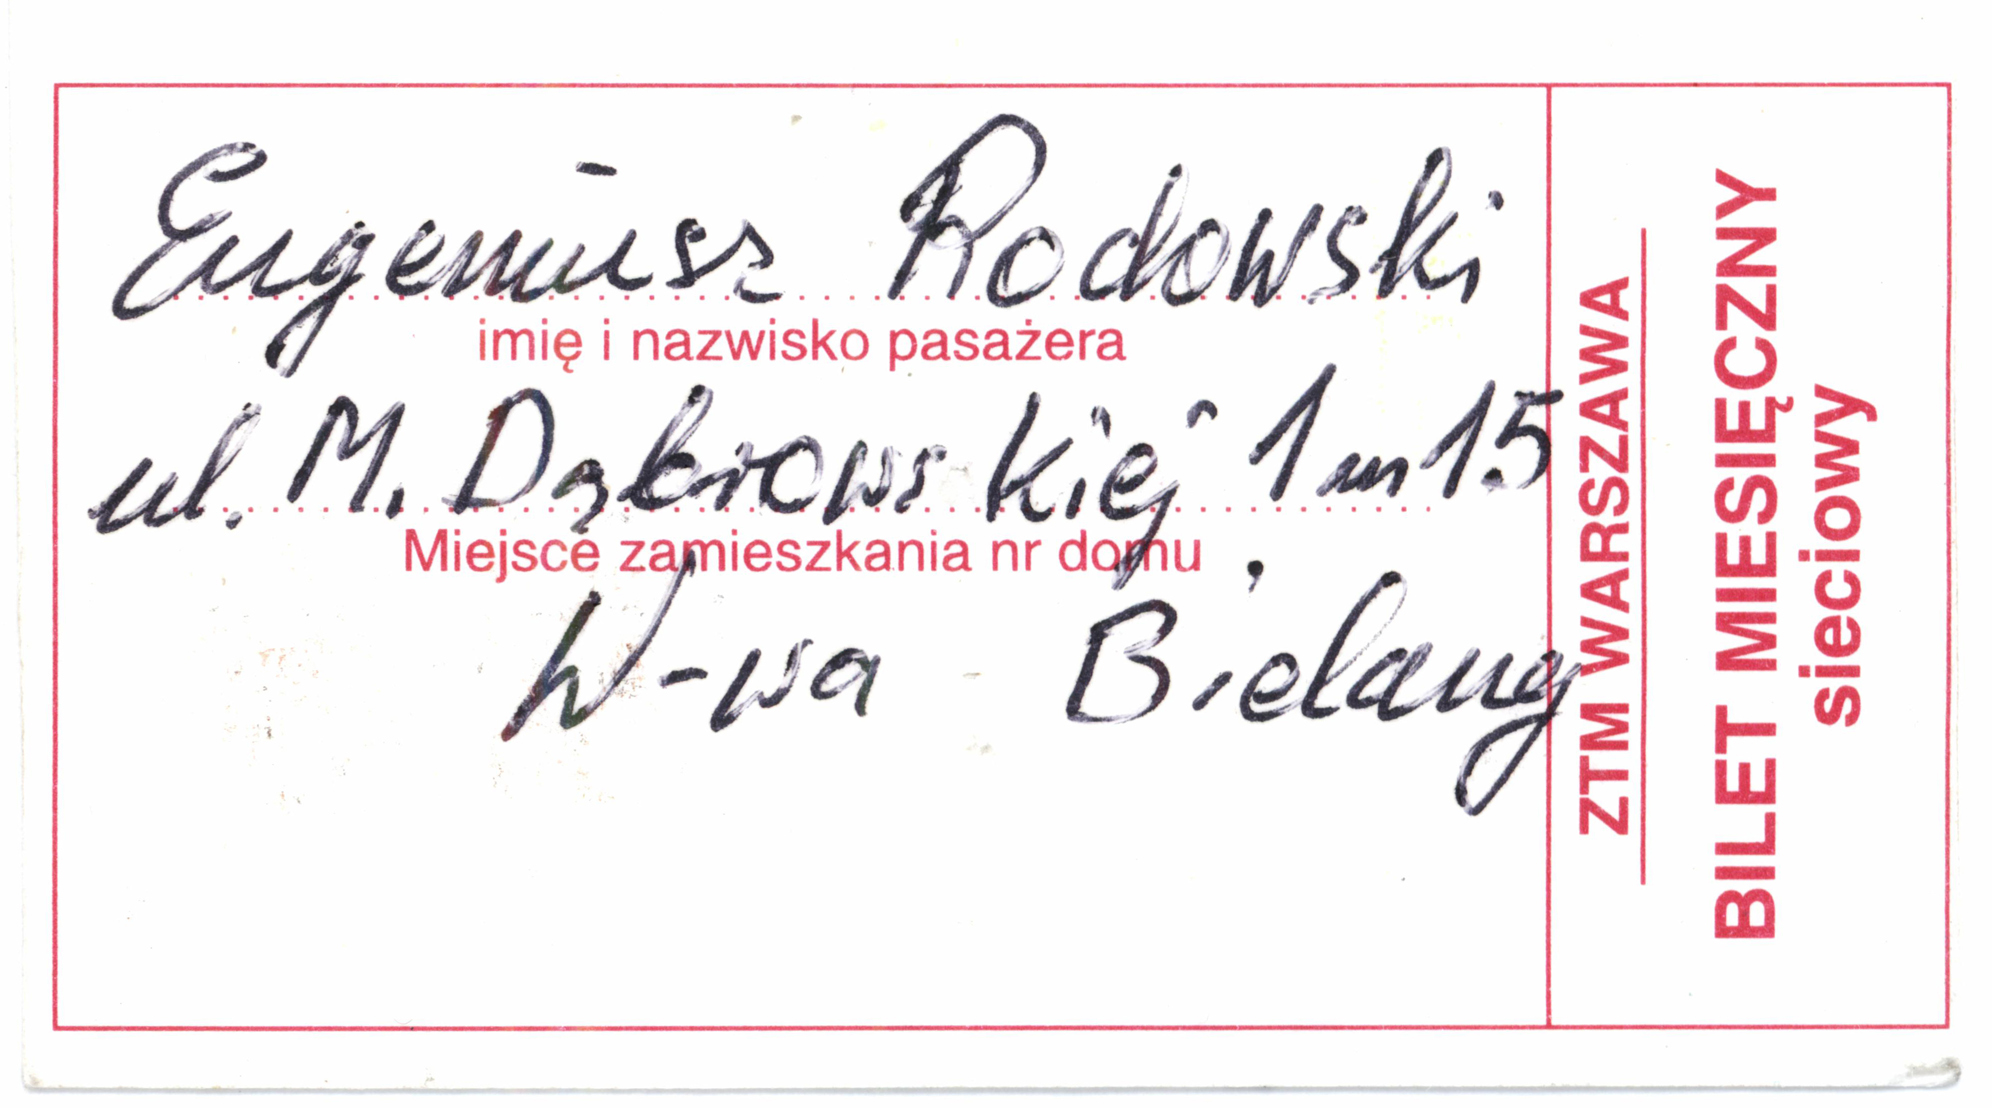 Eugeniusz Rodowski
imię i nazwisko pasażera
ul. M. Dąbrowskiej 1 m 15
Miejsce zamieszkania nr domu
W-wa - Bielany
ZTM WARSZAWA
BILET MIESIĘCZNY
sieciowy